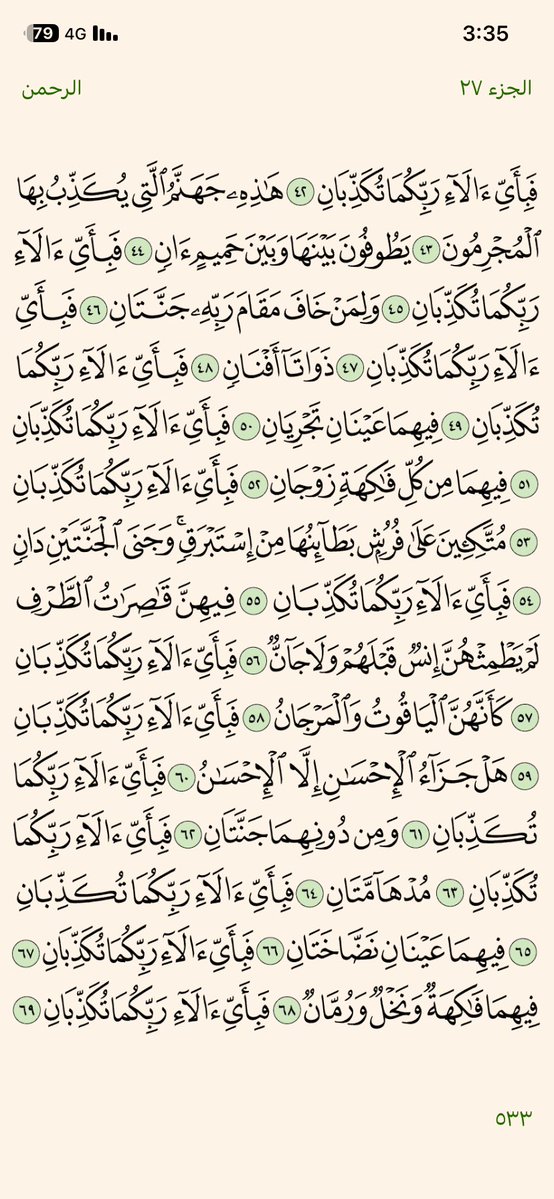 79 4G 3:35
الرحمن الجزء ٢٧
فَبِأَيِّ ءَالَآءِ رَبِّكُمَا تُكَذِّبَانِ ٤٢ هَٰذِهِۦ جَهَنَّمُ ٱلَّتِي يُكَذِّبُ بِهَا
ٱلْمُجْرِمُونَ ٤٣ يَطُوفُونَ بَيْنَهَا وَبَيْنَ حَمِيمٍ ءَانٍ ٤٤ فَبِأَيِّ ءَالَآءِ
رَبِّكُمَا تُكَذِّبَانِ ٤٥ وَلِمَنْ خَافَ مَقَامَ رَبِّهِۦ جَنَّتَانِ ٤٦ فَبِأَيِّ
ءَالَآءِ رَبِّكُمَا تُكَذِّبَانِ ٤٧ ذَوَاتَآ أَفْنَانٍ ٤٨ فَبِأَيِّ ءَالَآءِ رَبِّكُمَا
تُكَذِّبَانِ ٤٩ فِيهِمَا عَيْنَانِ تَجْرِيَانِ ٥٠ فَبِأَيِّ ءَالَآءِ رَبِّكُمَا تُكَذِّبَانِ
٥١ فِيهِمَا مِن كُلِّ فَٰكِهَةٍ زَوْجَانِ ٥٢ فَبِأَيِّ ءَالَآءِ رَبِّكُمَا تُكَذِّبَانِ
٥٣ مُتَّكِـِٔينَ عَلَىٰ فُرُشٍۭ بَطَآئِنُهَا مِنْ إِسْتَبْرَقٍ ۚ وَجَنَى ٱلْجَنَّتَيْنِ دَانٍ
٥٤ فَبِأَيِّ ءَالَآءِ رَبِّكُمَا تُكَذِّبَانِ ٥٥ فِيهِنَّ قَٰصِرَٰتُ ٱلطَّرْفِ
لَمْ يَطْمِثْهُنَّ إِنسٌ قَبْلَهُمْ وَلَا جَآنٌّ ٥٦ فَبِأَيِّ ءَالَآءِ رَبِّكُمَا تُكَذِّبَانِ
٥٧ كَأَنَّهُنَّ ٱلْيَاقُوتُ وَٱلْمَرْجَانُ ٥٨ فَبِأَيِّ ءَالَآءِ رَبِّكُمَا تُكَذِّبَانِ
٥٩ هَلْ جَزَآءُ ٱلْإِحْسَٰنِ إِلَّا ٱلْإِحْسَٰنُ ٦٠ فَبِأَيِّ ءَالَآءِ رَبِّكُمَا
تُكَذِّبَانِ ٦١ وَمِن دُونِهِمَا جَنَّتَانِ ٦٢ فَبِأَيِّ ءَالَآءِ رَبِّكُمَا
تُكَذِّبَانِ ٦٣ مُدْهَآمَّتَانِ ٦٤ فَبِأَيِّ ءَالَآءِ رَبِّكُمَا تُكَذِّبَانِ
٦٥ فِيهِمَا عَيْنَانِ نَضَّاخَتَانِ ٦٦ فَبِأَيِّ ءَالَآءِ رَبِّكُمَا تُكَذِّبَانِ ٦٧
فِيهِمَا فَٰكِهَةٌ وَنَخْلٌ وَرُمَّانٌ ٦٨ فَبِأَيِّ ءَالَآءِ رَبِّكُمَا تُكَذِّبَانِ ٦٩
٥٣٣